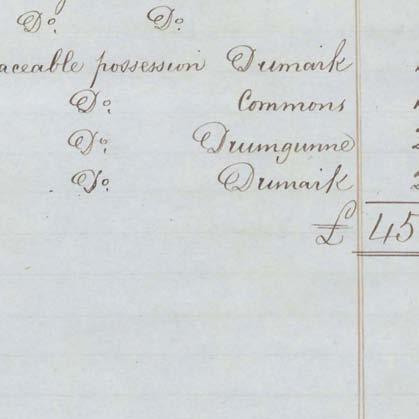 Do. Do.
aceable possession Drumark
Do. Commons
Do. Drumgunne
Do. Drumark
£ 45